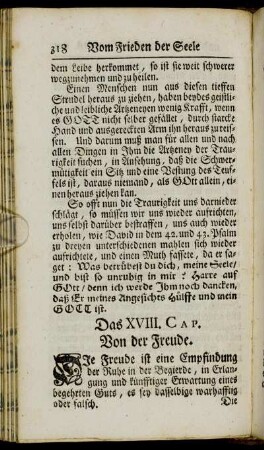 318 Vom Frieden der Seele
dem Leibe herkommet, so ist sie weit schwerer
wegzunehmen und zu heilen.
Einen Menschen nun aus diesen tieffen
Strudel heraus zu ziehen, haben beydes geistli-
che und leibliche Artzeneyen wenig Krafft, wenn
es GOTT nicht selber gefället, durch starcke
Hand und ausgereckten Arm ihn heraus zureis-
sen. Und darum muß man für allen und nach
allen Dingen in Ihm die Artzeney der Trau-
rigkeit suchen, in Ansehung, daß die Schwer-
mütigkeit ein Sitz und eine Vestung des Teuf-
fels ist, daraus niemand, als GOtt allein, ei-
nen heraus ziehen kan.
So offt nun die Traurigkeit uns darnieder
schlägt, so müssen wir uns wieder aufrichten,
uns selbst darüber bestraffen, uns auch wieder
erholen, wie David in dem 42. und 43. Psalm
zu dreyen unterschiedenen mahlen sich wieder
aufrichtete, und einen Muth fassete, da er sa-
get: Was betrübest du dich, meine Seele/
und bist so unruhig in mir? Harre auf
GOtt/ denn ich werde Ihm noch dancken,
daß Er meines Angesichts Hülffe und mein
GOTT ist.
Das XVIII. CAP.
Von der Freude.
DIe Freude ist eine Empfindung
der Ruhe in der Begierde, in Erlan-
gung und künfftiger Erwartung eines
begehrten Guts, es sey dasselbige warhafftig
oder falsch. Die